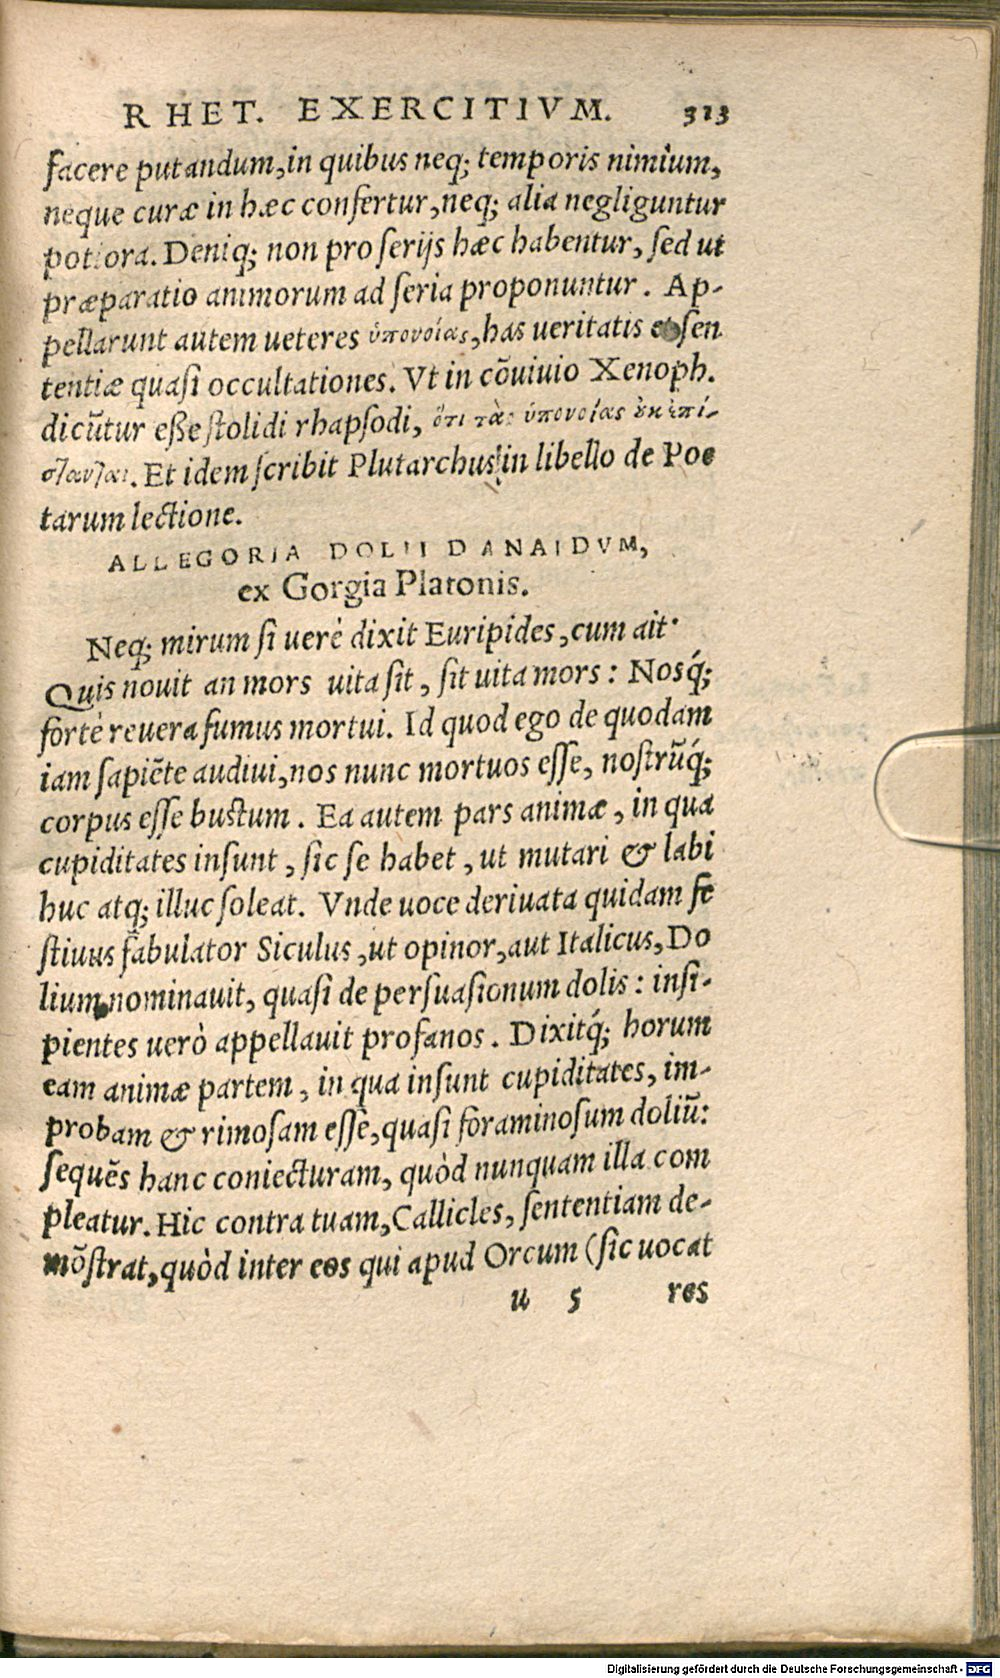 RHET. EXERCITIVM. 313
facere putandum, in quibus neq; temporis nimium,
neque curæ in hæc confertur, neq; alia negliguntur
potiora. Deniq; non pro serijs hæc habentur, sed ut
præparatio animorum ad seria proponuntur. Ap-
pellarunt autem ueteres ὑπονοίας, has ueritatis et sen
tentiæ quasi occultationes. Vt in cōuiuio Xenoph.
dicūtur eße stolidi rhapsodi, ὅτι τὰς ὑπονοίας ἐκ ἐπί-
σανται. Et idem scribit Plutarchus in libello de Poe
tarum lectione.
ALLEGORIA DOLII DANAIDVM,
ex Gorgia Platonis.
Neq; mirum si uerè dixit Euripides, cum ait·
Quis nouit an mors uita sit, sit uita mors: Nosq́;
fortè reuera sumus mortui. Id quod ego de quodam
iam sapiēte audiui, nos nunc mortuos esse, nostrūq́;
corpus esse bustum. Ea autem pars animæ, in qua
cupiditates insunt, sic se habet, ut mutari & labi
huc atq; illuc soleat. Vnde uoce deriuata quidam fe
stiuus fabulator Siculus, ut opinor, aut Italicus, Do
lium nominauit, quasi de persuasionum dolis: insi-
pientes uerò appellauit profanos. Dixitq́; horum
eam animæ partem, in qua insunt cupiditates, im-
probam & rimosam esse, quasi foraminosum doliū:
sequēs hanc coniecturam, quòd nunquam illa com
pleatur. Hic contra tuam, Callicles, sententiam de-
mōstrat, quòd inter eos qui apud Orcum (sic uocat
u 5 res
Digitalisierung gefördert durch die Deutsche Forschungsgemeinschaft - DFG